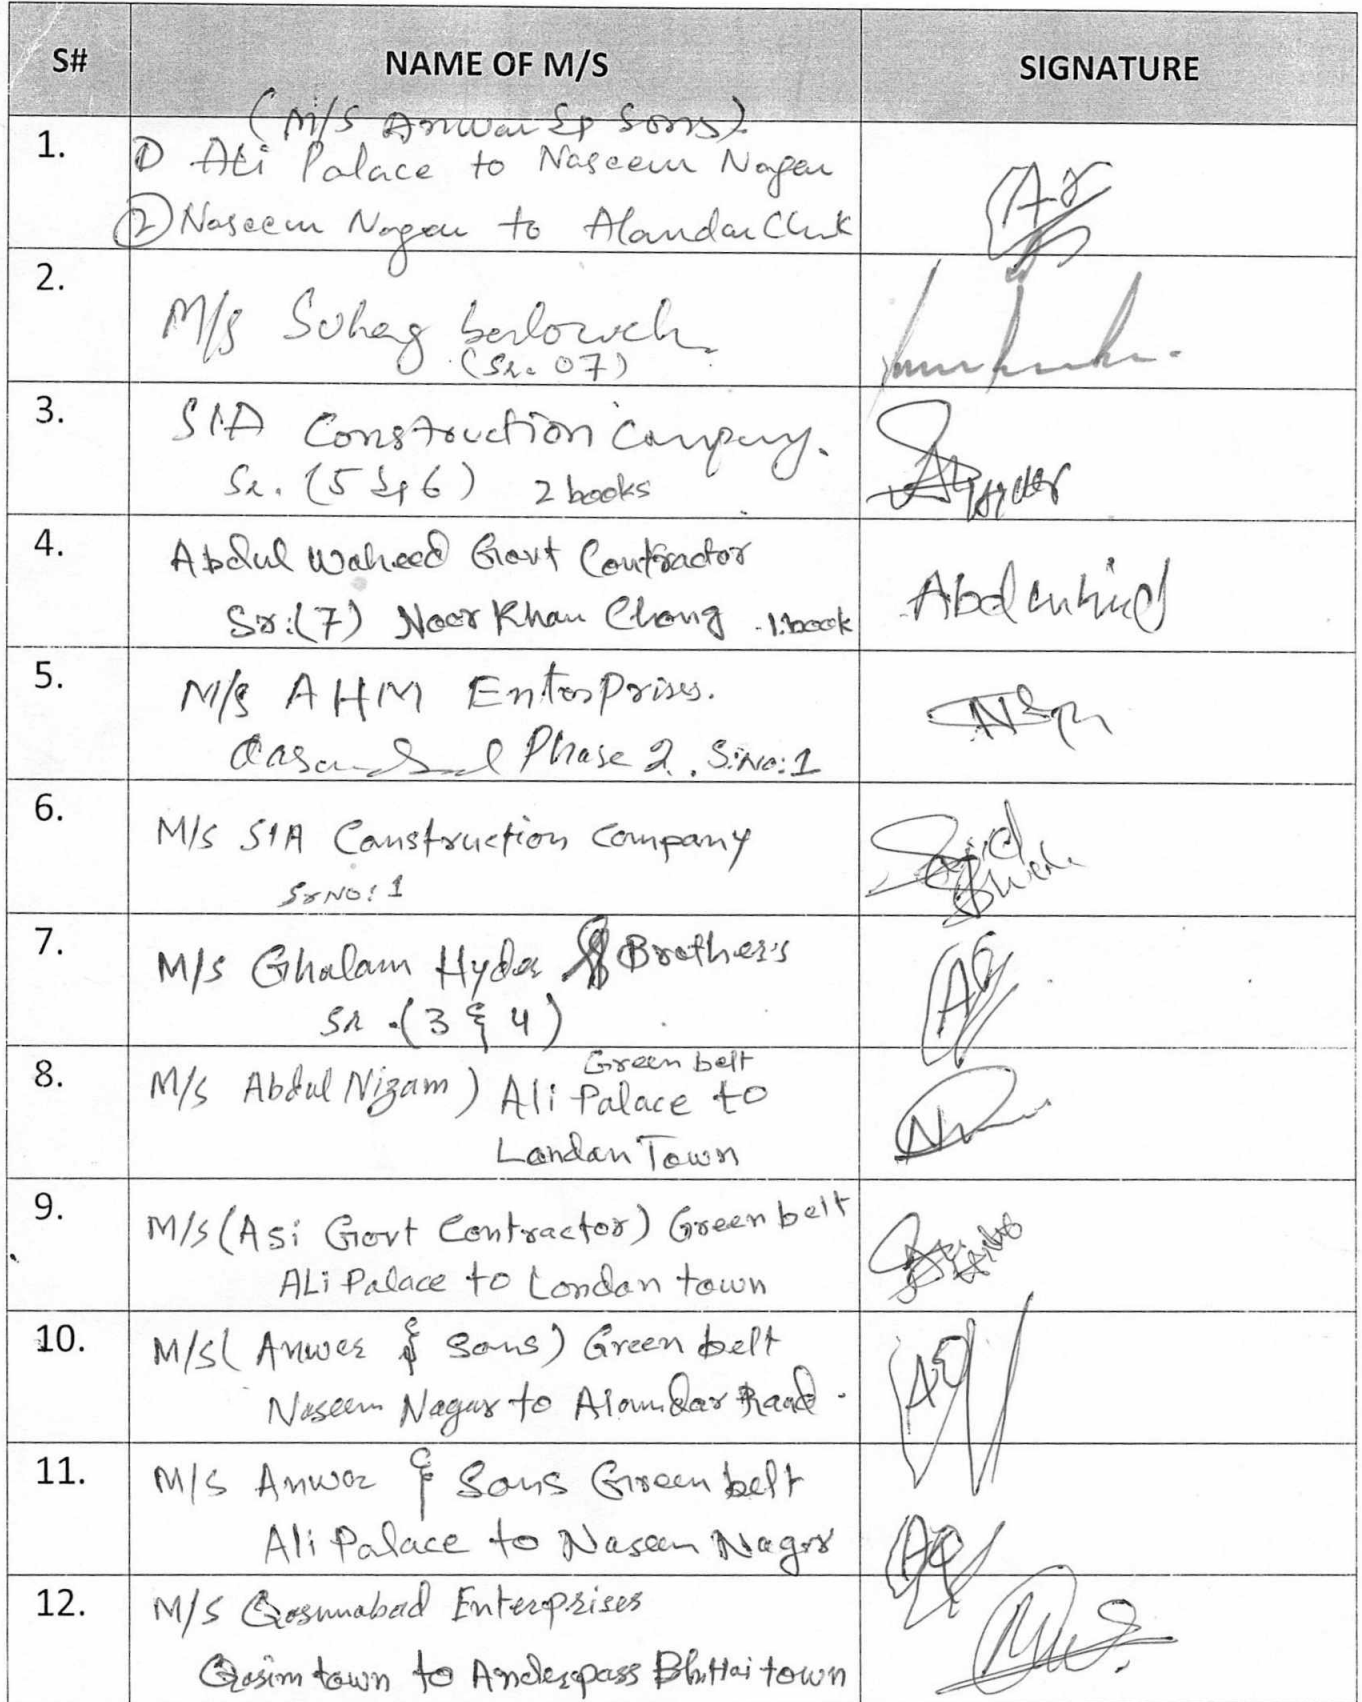 S# NAME OF M/S SIGNATURE
(M/S Anwar & Sons)
1. ① Ali Palace to Naseem Nagar
② Naseem Nagar to Alamdar Chuk
2. M/s Sohag
(Sr. 07)
3. SIA Construction Company.
Sr. (5 & 6) 2 books
4. Abdul Waheed Govt Contractor
Sr:(7) Noor Khan Chong 1.book
5. M/s AHM Enterprises.
Phase 2. S.No:1
6. M/s SIA Construction Company
Sr No: 1
7. M/s Ghulam Hyder & Brother's
Sr.(3 & 4)
8. M/s Abdul Nizam) Green belt
Ali Palace to
Landan Town
9. M/s (Asi Govt Contractor) Green belt
ALi Palace to London town
10. M/s( Anwer & Sons) Green belt
Naseem Nagar to Alamdar Raad.
11. M/s Anwar & Sons Green belt
Ali Palace to Naseem Nagar
12. M/s Qasimabad Enterprises
Qasim town to Anderpass Bhittai town